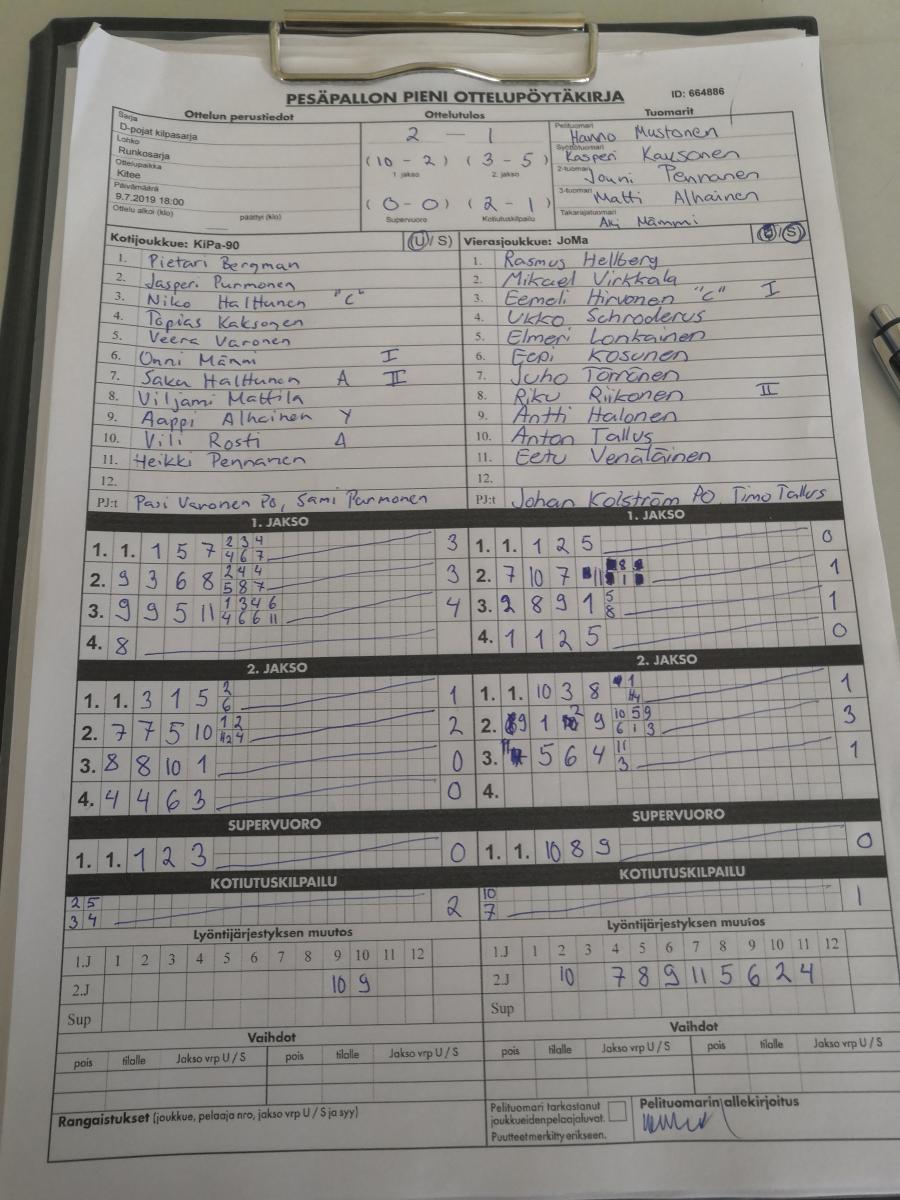 PESÄPALLON PIENI OTTELUPÖYTÄKIRJA ID: 664886
Ottelun perustiedot Ottelutulos Tuomarit
Sarja
D-pojat kilpasarja
Lohko
Runkosarja
Ottelupaikka
Kitee
Päivämäärä
9.7.2019 18:00
Ottelu alkoi (klo) päättyi (klo)
2 - 1
(10 - 2) (3 - 5)
1. jakso 2. jakso
(0 - 0) (2 - 1)
Supervuoro Kotiutuskilpailu
Pelituomari
Hanno Mustonen
Syöttötuomari
Kasperi Kausonen
2-tuomari
Jouni Pennanen
3-tuomari
Matti Alhainen
Takarajatuomari
Aki Mämmi
Kotijoukkue: KiPa-90 (U/S)
1. Pietari Bergman
2. Jasperi Purmonen
3. Niko Halttunen "C"
4. Topias Kaksonen
5. Veera Varonen
6. Onni Männi I
7. Saku Halttunen A II
8. Viljami Mattila
9. Aappi Alhainen Y
10. Vili Rosti A
11. Heikki Pennanen
12.
PJ:t Pasi Varonen PÖ, Sami Purmonen
Vierasjoukkue: JoMa (U/S)
1. Rasmus Hellberg
2. Mikael Virkkala
3. Eemeli Hirvonen "C" I
4. Ukko Schroderus
5. Elmeri Lonkainen
6. Eepi Kosunen
7. Juho Torrönen
8. Riku Riikonen II
9. Antti Halonen
10. Anton Tallus
11. Eetu Venäläinen
12.
PJ:t Johan Kolström PÖ Timo Tallus
1. JAKSO
1. 1. 1 5 7 2 3 4 4 6 7 3
2. 9 3 6 8 2 4 4 5 8 7 3
3. 9 9 5 11 1 3 4 6 4 6 6 11 4
4. 8
1. JAKSO
1. 1. 1 2 5 0
2. 7 10 7 11 8 1 1
3. 2 8 9 1 5 8 1
4. 1 1 2 5 0
2. JAKSO
1. 1. 3 1 5 2 6 1
2. 7 7 5 10 1 2 2 4 2
3. 8 8 10 1 0
4. 4 4 6 3 0
2. JAKSO
1. 1. 10 3 8 1 4 1
2. 9 1 2 9 10 5 9 6 1 3 3
3. 11 5 6 4 11 3 1
4.
SUPERVUORO
1. 1. 1 2 3 0
SUPERVUORO
1. 1. 10 8 9 0
KOTIUTUSKILPAILU
2 5
3 4 2
KOTIUTUSKILPAILU
10
7 1
Lyöntijärjestyksen muutos
1.J 1 2 3 4 5 6 7 8 9 10 11 12
2.J 10 9
Sup
Lyöntijärjestyksen muutos
1.J 1 2 3 4 5 6 7 8 9 10 11 12
2.J 10 7 8 9 11 5 6 2 4
Sup
Vaihdot
pois tilalle Jakso vrp U / S pois tilalle Jakso vrp U / S
Vaihdot
pois tilalle Jakso vrp U / S pois tilalle Jakso vrp U / S
Rangaistukset (joukkue, pelaaja nro, jakso vrp U / S ja syy)
Pelituomari tarkastanut
joukkueiden pelaajaluvat.
Puutteet merkitty erikseen.
Pelituomarin allekirjoitus